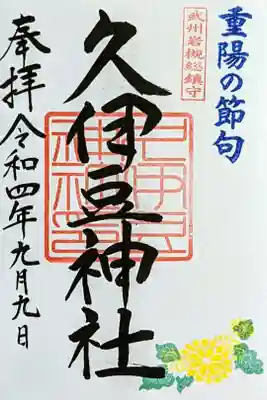 重陽の節句
武州岩槻総鎮守
久伊豆神社
奉拝 令和四年九月九日